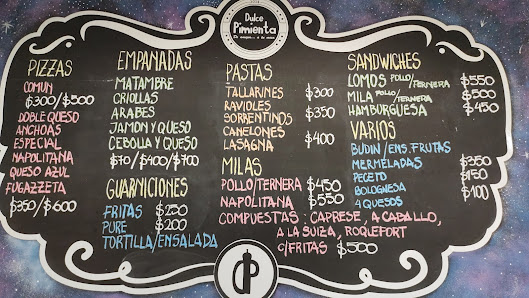 Dulce
Pimienta
PIZZAS
COMUN
$300/$500
DOBLE QUESO
ANCHOAS
ESPECIAL
NAPOLITANA
QUESO AZUL
FUGAZZETA
$350/$600
EMPANADAS
MATAMBRE
CRIOLLAS
ARABES
JAMON Y QUESO
CEBOLLA Y QUESO
$70/$400/$700
GUARNICIONES
FRITAS $250
PURE $200
TORTILLA/ENSALADA
PASTAS
TALLARINES $300
RAVIOLES
SORRENTINOS $350
CANELONES
LASAGNA $400
MILAS
POLLO/TERNERA $450
NAPOLITANA $550
COMPUESTAS: CAPRESE, A CABALLO,
A LA SUIZA, ROQEFORT
C/FRITAS $500
SANDWICHES
LOMOS POLLO/TERNERA $550
MILA POLLO/TERNERA $500
HAMBURGUESA $450
VARIOS
BUDIN/ENS. FRUTAS
MERMELADAS $350
PECETO $150
BOLOGNESA $100
4 QUESOS